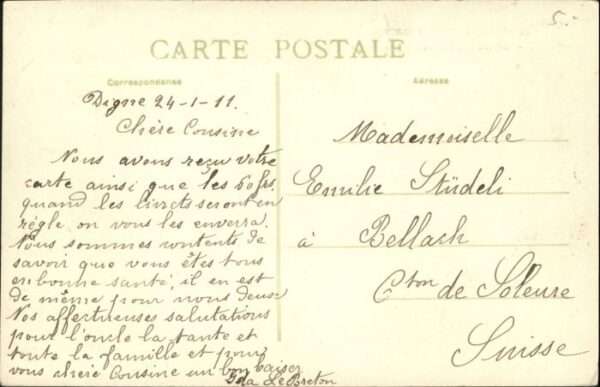 5.-
CARTE POSTALE
Correspondance
Adresse
Digne 24-1-11.
Chère Cousine
Nous avons reçu votre
carte ainsi que les 60 frs.
quand les livrets seront en
règle on vous les enverra.
Nous sommes contents de
savoir que vous êtes tous
en bonne santé, il en est
de même pour nous deux
Nos affectueuses salutations
pour l'oncle la tante et
toute la famille et pour
vous chère Cousine un bon baiser
Le Breton
Mademoiselle
Emilie Stüdeli
à Bellach
Cton de Soleure
Suisse